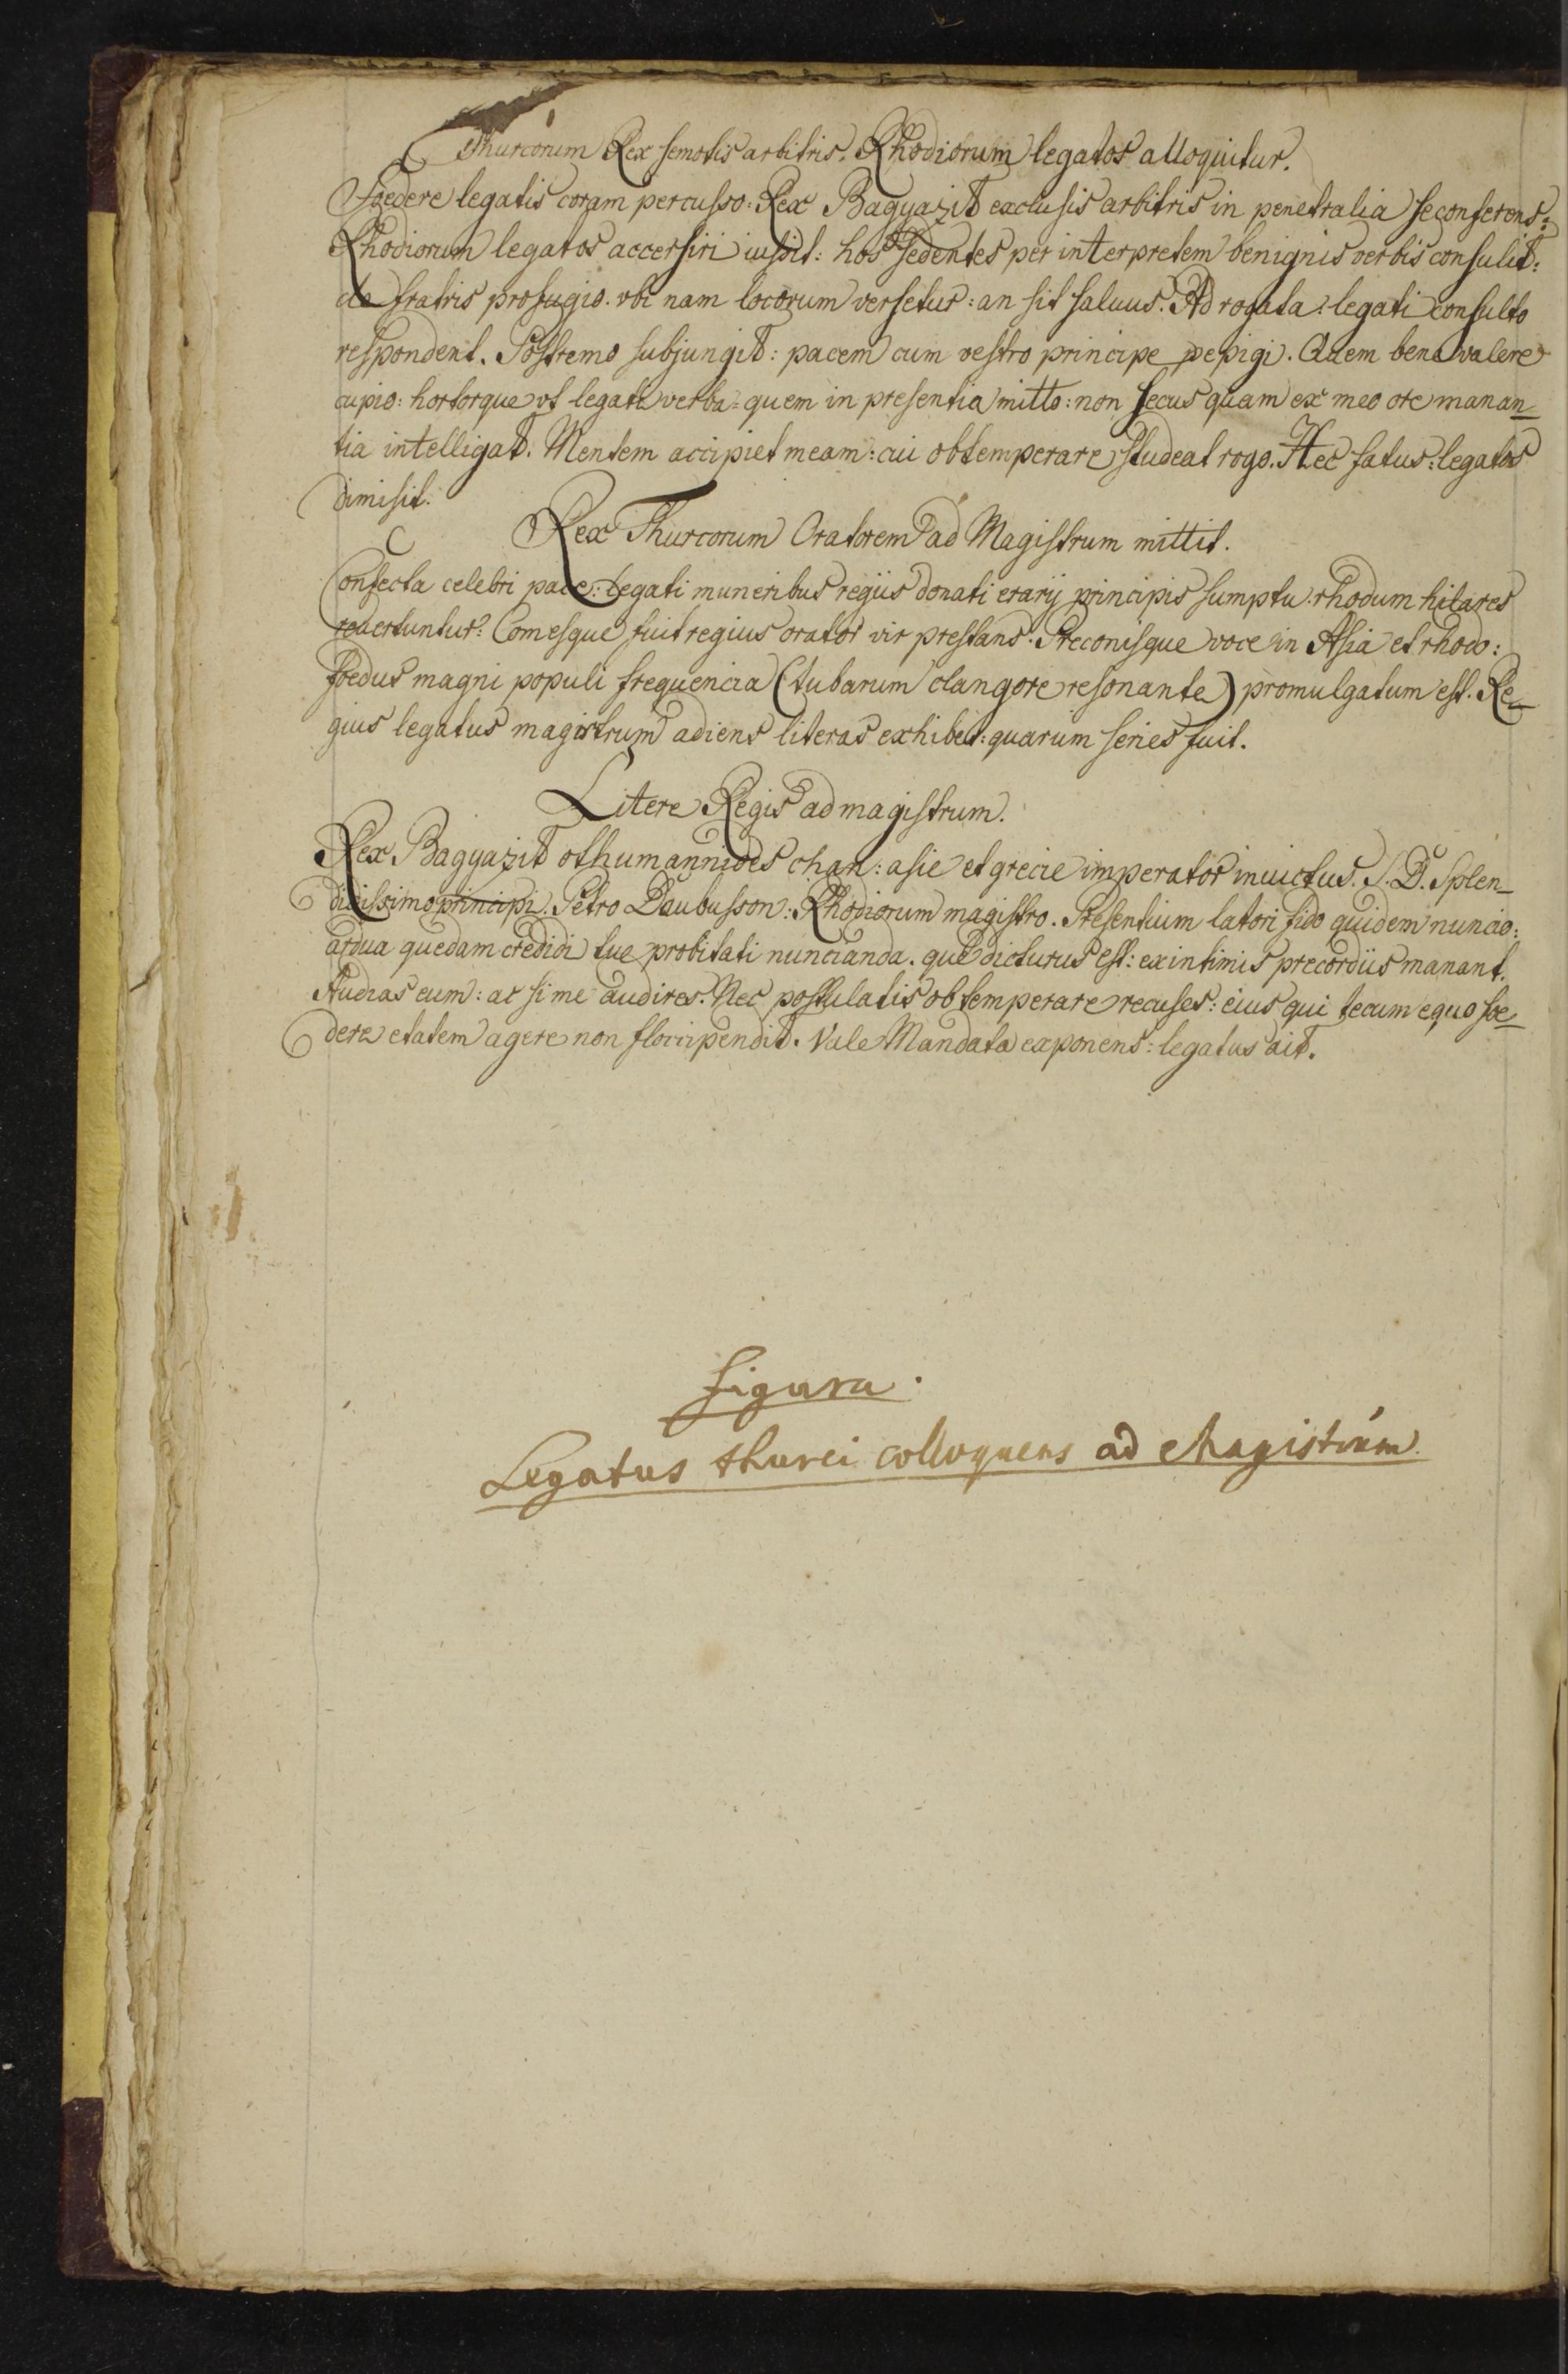 Thurcorum Rex semotis arbitris. Rhodiorum legatos alloquitur.
Foedere legatis coram percusso: Rex Bagyazit exclusis arbitris in penetralia se conferens:
Rhodiorum legatos accersiri iussit: hos sedentes per interpretem benignis verbis consulit:
de fratris profugio. vbi nam locorum versetur: an sit saluus. Ad rogata: legati consulto
respondent. Postremo subjungit: pacem cum vestro principe pepigi. Quem bene valere
cupio: hortorque vt legati verba: quem in presentia mitto: non secus quam ex meo ore manan_
tia intelligat. Mentem accipiet meam: cui obtemperare studeat rogo. Hec fatus: legatos
dimisit.
Rex Thurcorum Oratorem ad Magistrum mittit.
Confecta celebri pace: Legati muneribus regiis donati erarij principis sumptu: rhodum hilares
reuertuntur: Comesque fuit regius orator vir prestans. Preconisque voce in Asia et rhodo:
foedus magni populi frequencia (tubarum clangore resonante) promulgatum est. Re_
gius legatus magistrum adiens literas exhibet: quarum series fuit.
Litere Regis ad magistrum.
Rex Bagyazit othumannides chan: asie et grecie imperator inuictus. S. D. Splen_
didissimo principi. Petro Daubusson: Rhodiorum magistro. Presentium latori fido quidem nuncio:
ardua quedam credidi tue probitati nuncianda. que dicturus est: ex intimis precordiis manant.
Audias eum: ac si me audires. Nec postulatis obtemperare recuses: eius qui tecum equo foe_
dere etatem agere non floccipendit. Vale Mandata exponens: legatus ait.
figura.
Legatus thurci colloquens ad Magistrum.